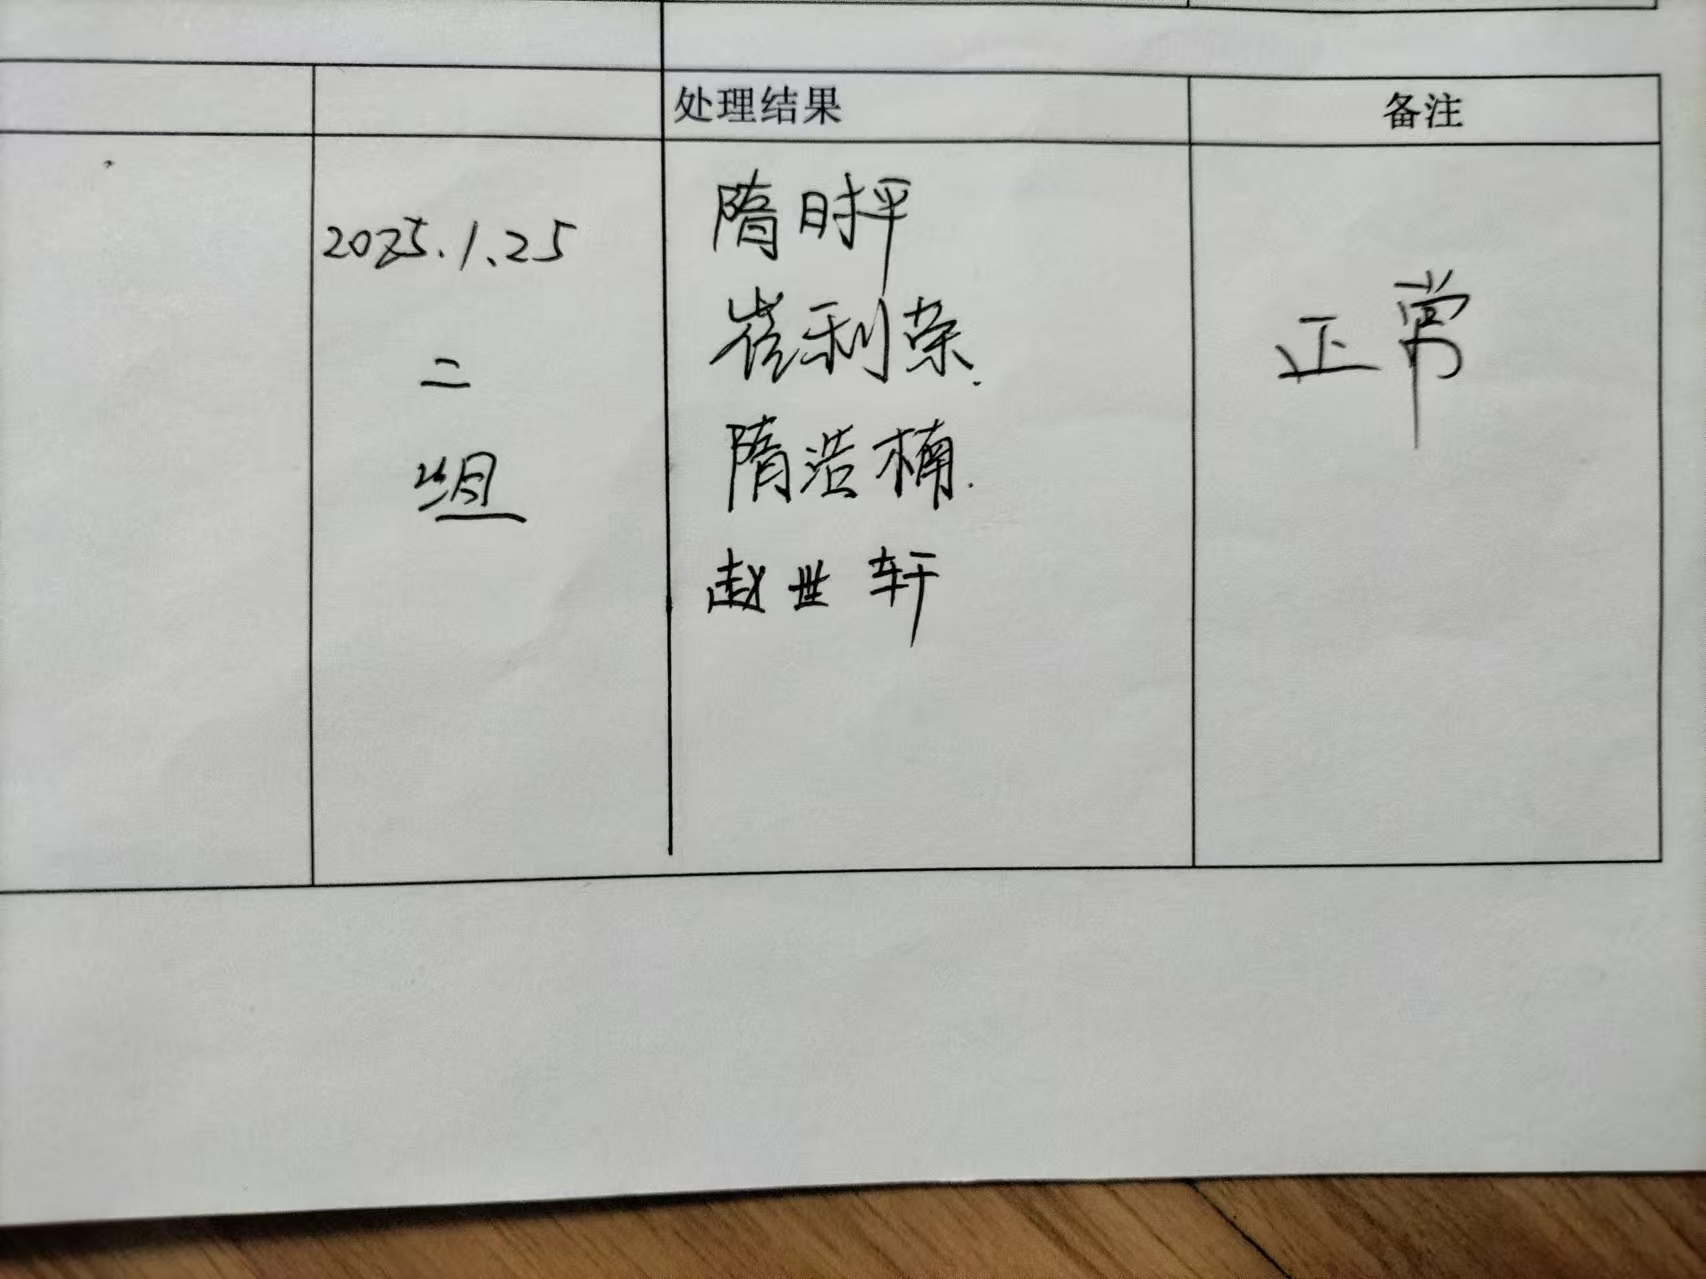 处理结果
备注
2025.1.25
二
组
隋时平
崔利荣.
隋浩楠.
赵世轩
正常